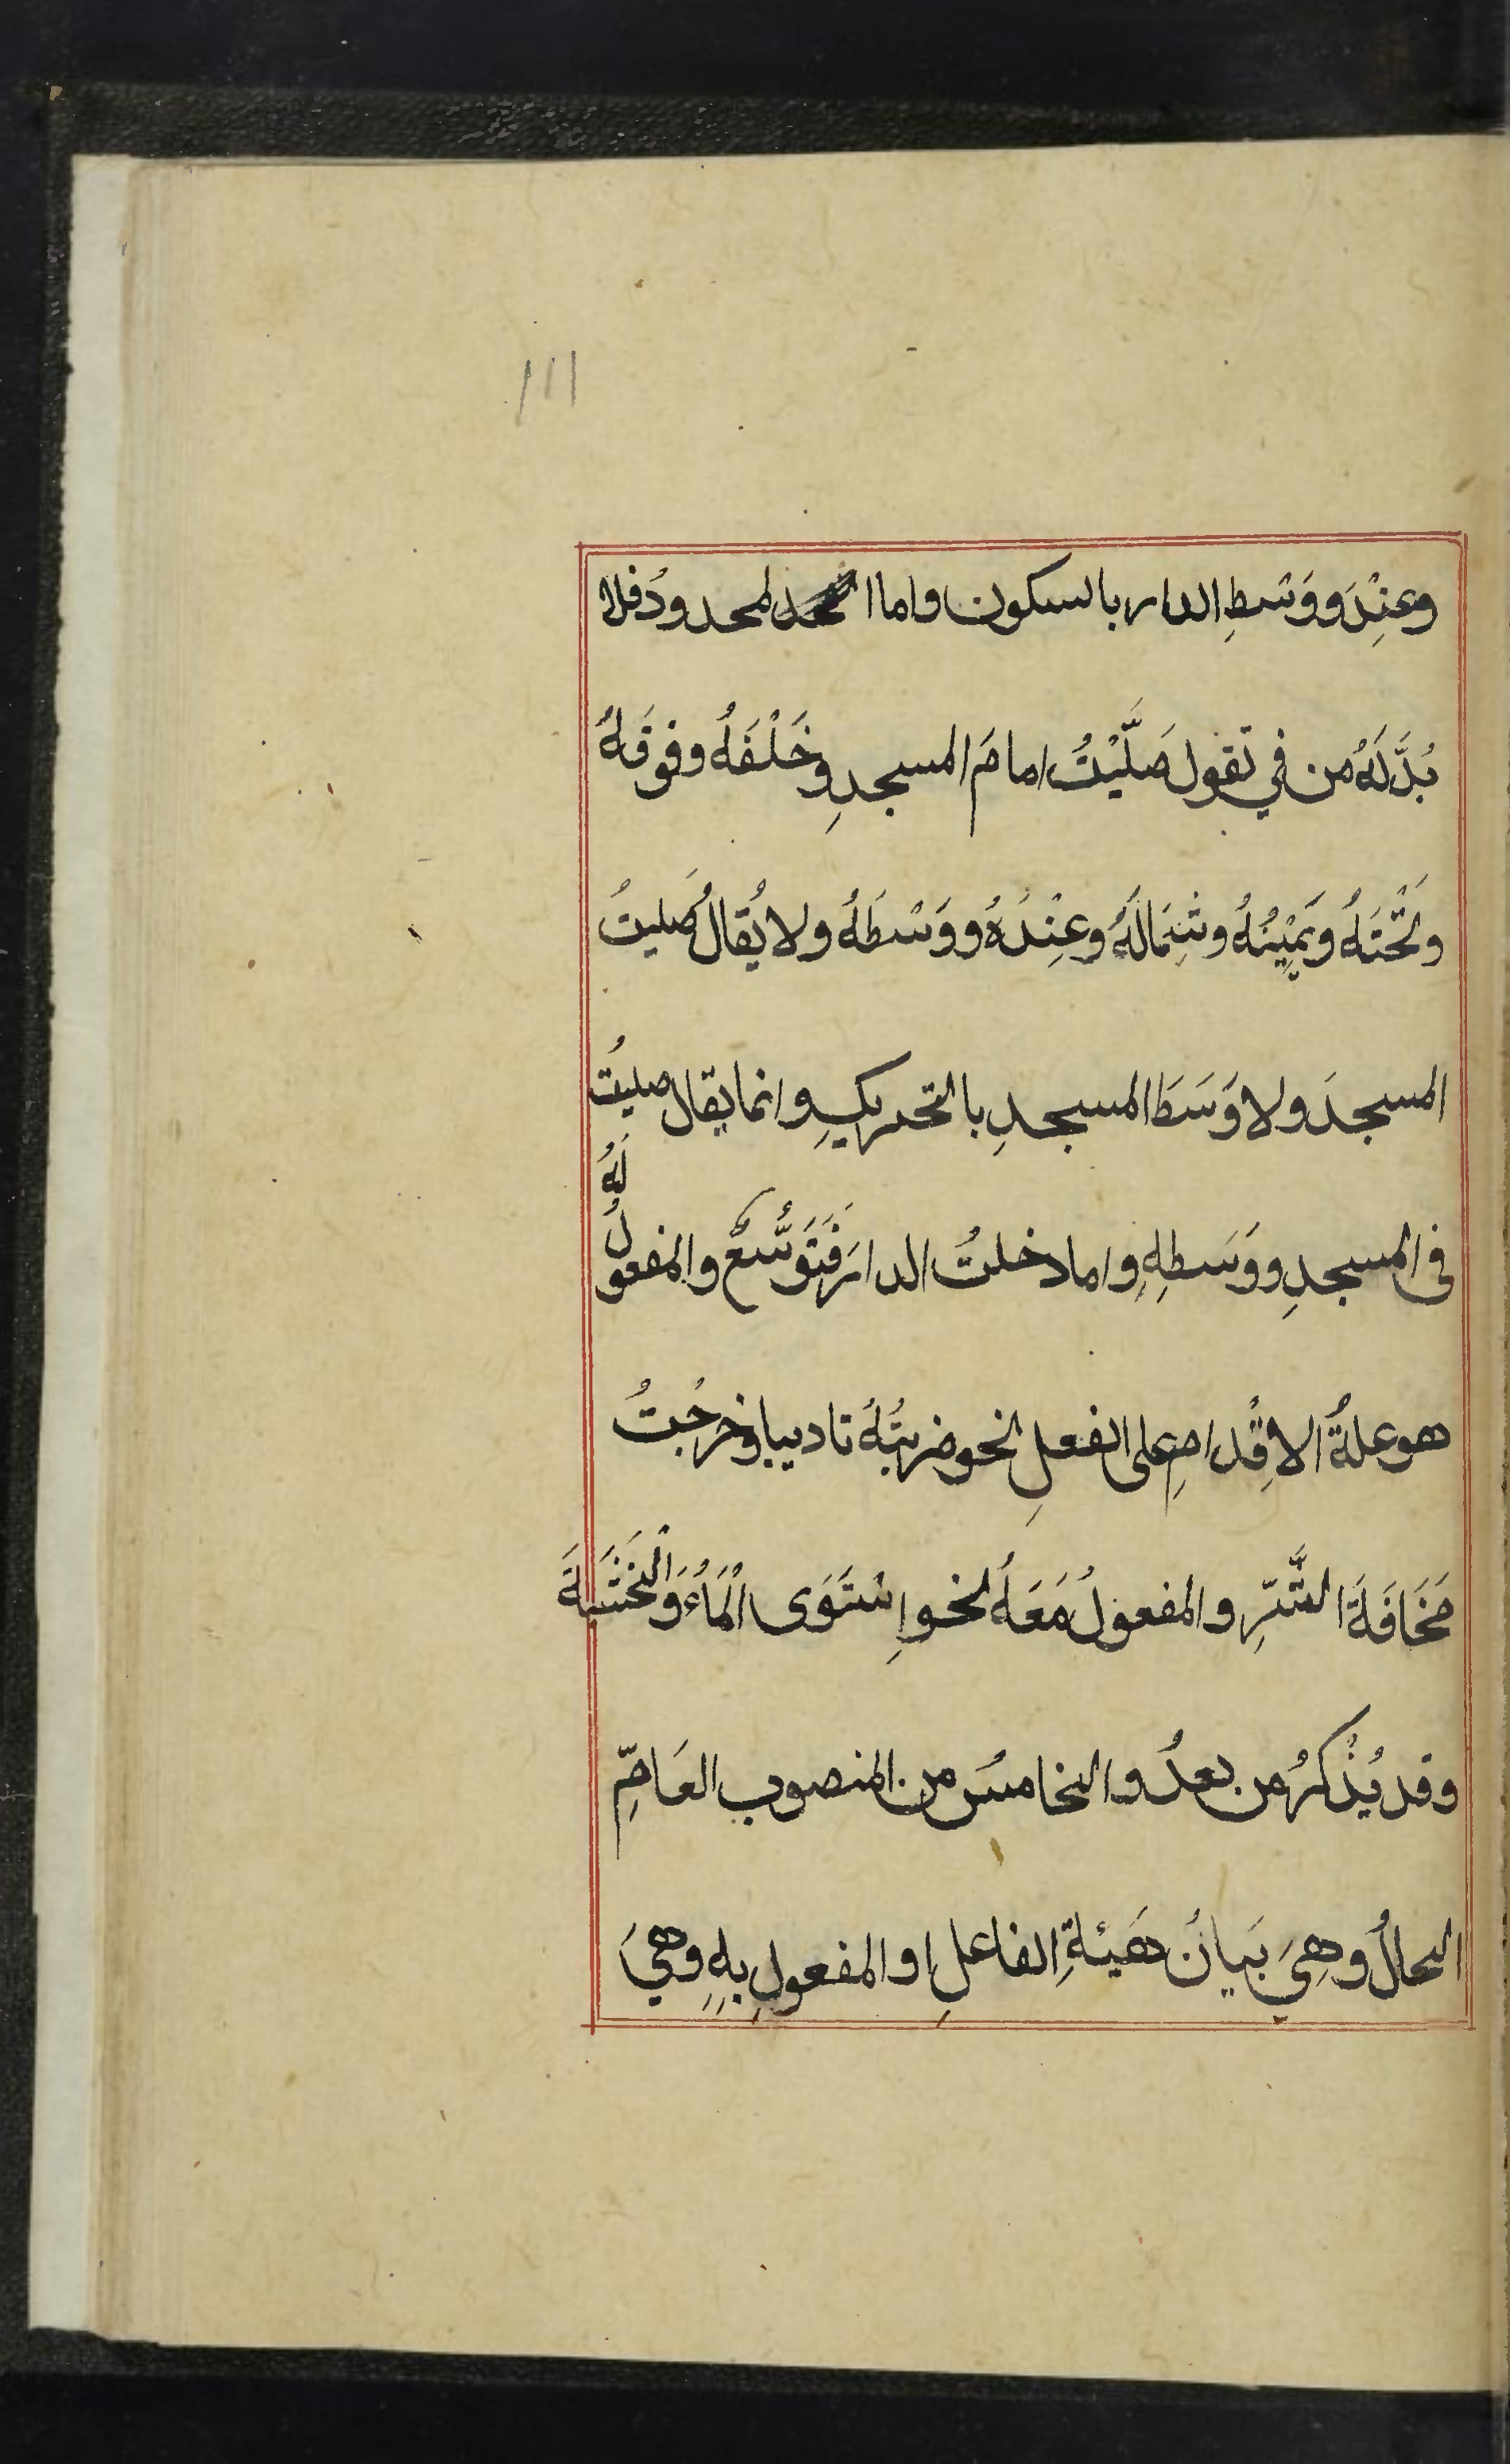 ١١١
وعِنْدَ ووَسْطِ الدار بالسكون واما المحدودُ فلا
بُدَّ لَهُ من في تقول صَلَّيْتُ امامَ المسجدِ وخَلْفَهُ وفوقَهُ
وتَحْتَهُ ويَمِيْنُهُ وشِمَالَهُ وعِنْدَهُ ووَسْطَهُ ولا يُقالُ صَليتُ
المسجدَ ولا وَسَطَ المسجدِ بالتحريكِ وانما يقال صليتُ
فى المسجدِ ووَسَطِهِ واما دخلتُ الدارَ فَتَوَسُّعٌ والمفعولُ لَهُ
هو علةُ الاقْدامِ على الفعلِ نحو ضربتُهُ تاديبا وخرجْتُ
مَخَافَةَ الشَّرِّ والمفعولُ مَعَهُ نحو اِسْتَوَى الْمَاءُ وَالْخَشَبَةَ
وقد يُذْكَرُ من بعدُ والخامسُ من المنصوب العَامِّ
الحالُ وهِيَ بَيانُ هَيئةِ الفاعلِ او المفعولِ بهِ وهيَ